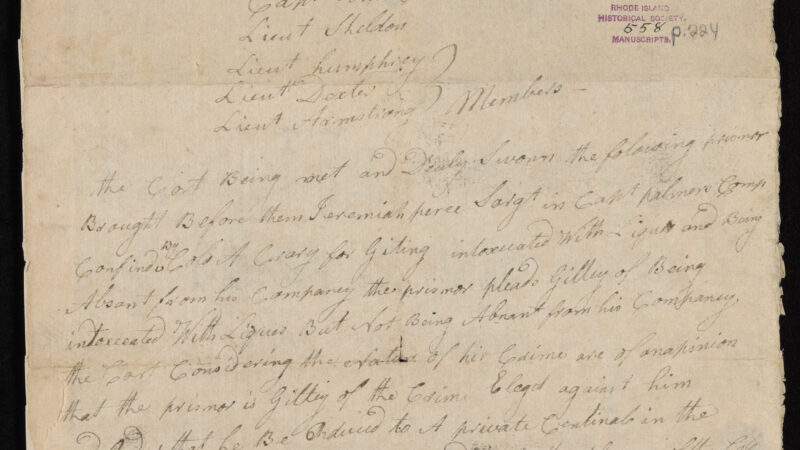 Capt
Lieut Sheldon
Lieut Humphrey
Lieut Dexter
Lieut Armstrong
Members
RHODE ISLAND
HISTORICAL SOCIETY.
558
MANUSCRIPTS.
p.224
the Cort Being met and Duly Sworn the folowing prisnor
Brought Before them Jeremiah perce Sargt in Capt palmers Comp
Confined By Colo A Crary for Giting intoxecated With Liquer and Being
Absant from his Companey the prisnor pleads Gilley of Being
intoxecated With Liques But Not Being Absant from his Companey.
the Cort Considering the of his Crime are of anapinion
that the prisnor is Gilley of the Crime Eleged against him
and that he Be Reduced to A private Centinal in the